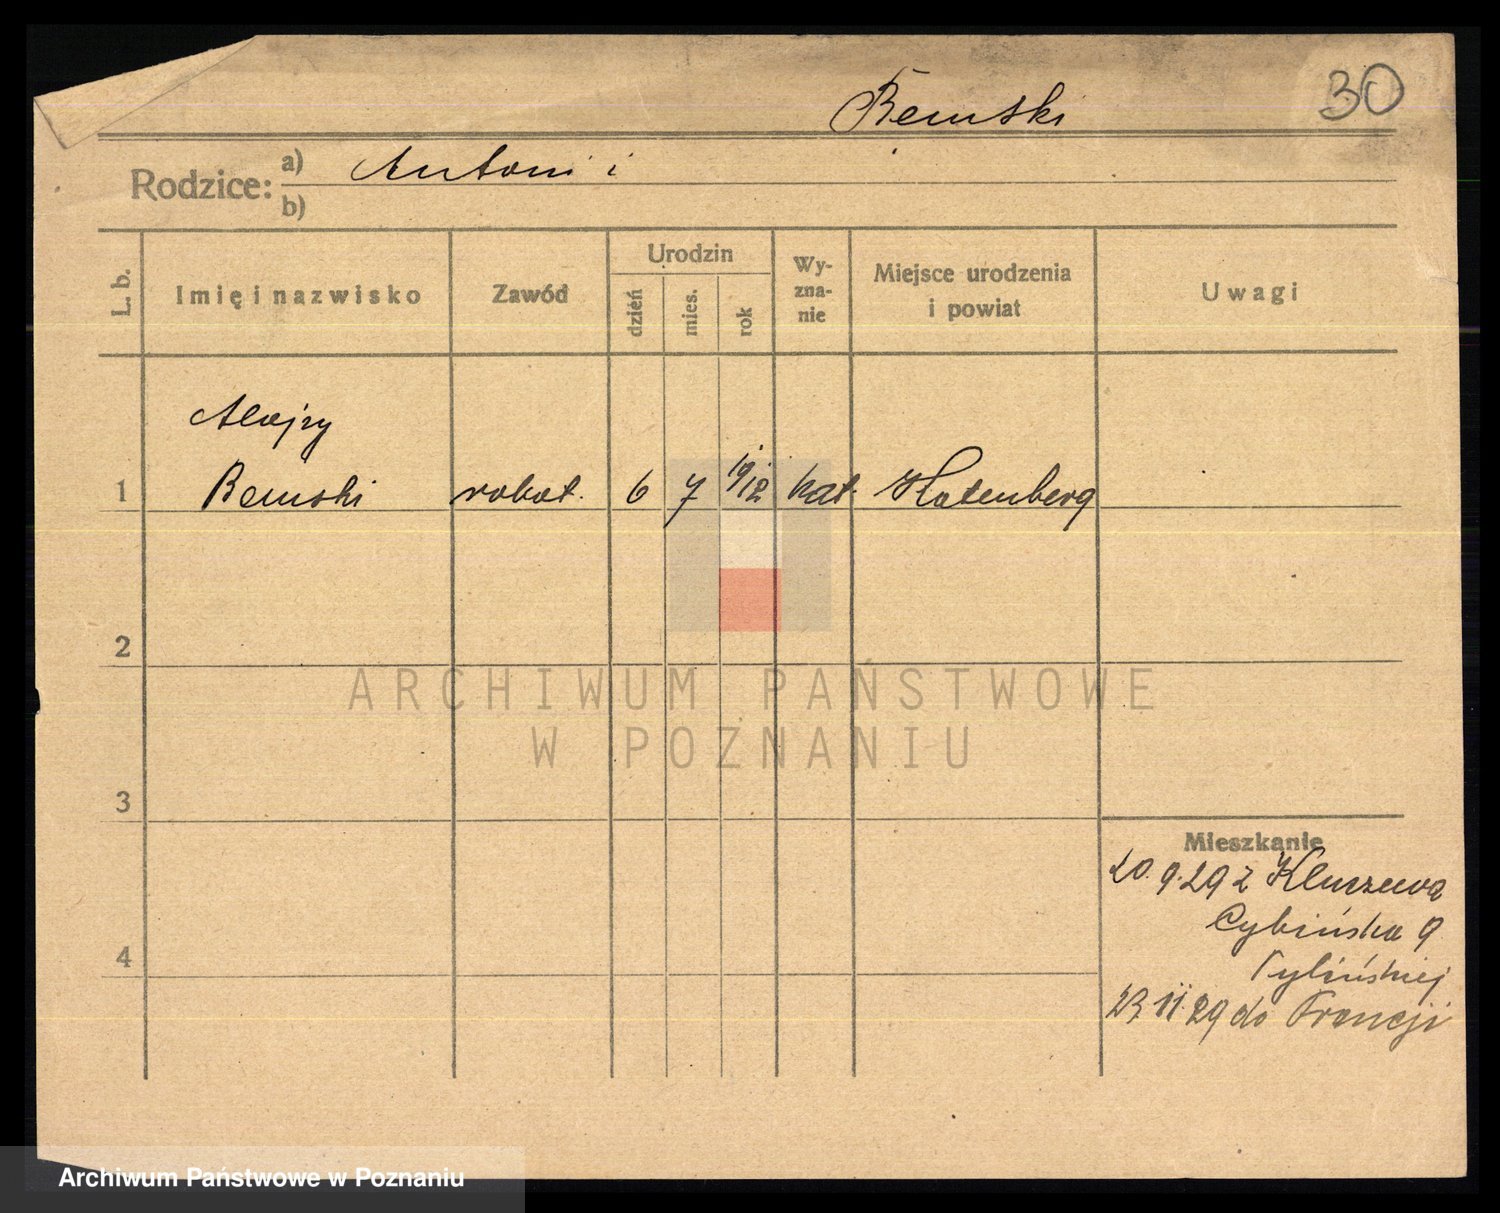 30
Bemski
Rodzice: a) Antoni i
b)
L. b.
Imię i nazwisko
Zawód
Urodzin
dzień
mies.
rok
Wy-
zna-
nie
Miejsce urodzenia
i powiat
Uwagi
1
Alojzy
Bemski
robot.
6
7
1912
kat.
Hatenberg
2
3
4
Mieszkanie
20.9.29 z Kluczewa
Cybińska 9
23.11.29 do Francji
ARCHIWUM PAŃSTWOWE
W POZNANIU
Archiwum Państwowe w Poznaniu